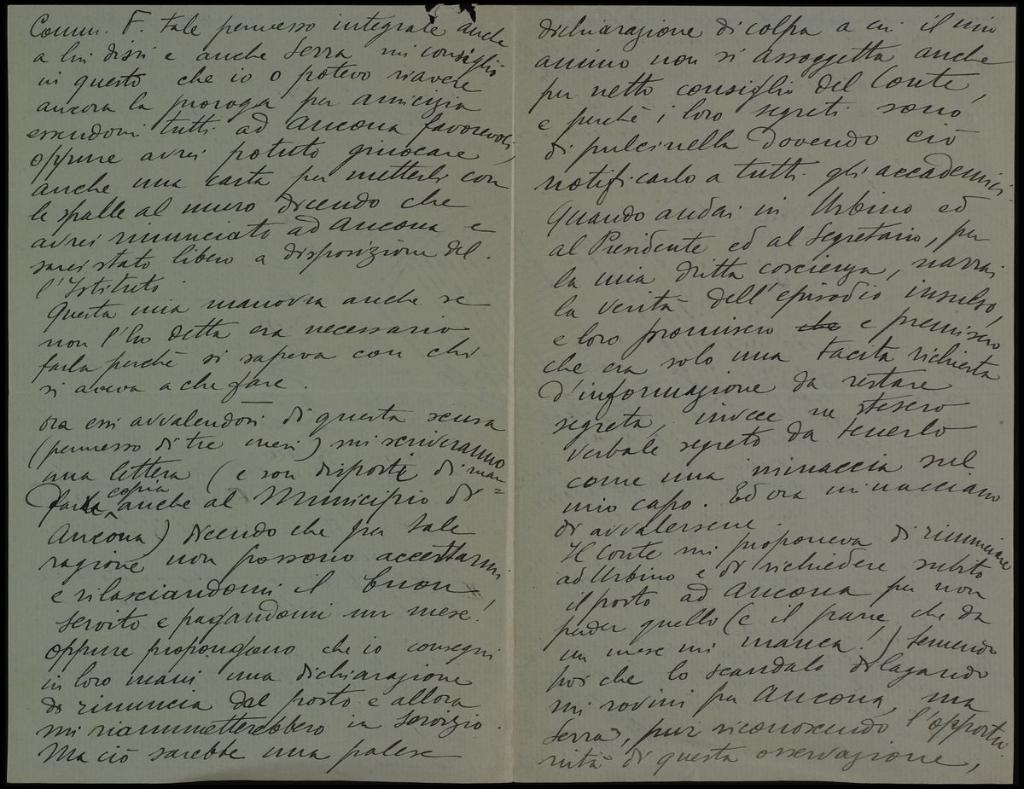 Comm. F. tale permesso integrale anche
a lui dissi e anche Serra mi consigliò
in questo che io o potevo riavere
ancora la proroga per amicizia
essendomi tutti ad Ancona favorevoli,
oppure avrei potuto giuocare
anche una carta per metterli con
le spalle al muro dicendo che
avrei rinunciato ad Ancona e
sarei stato libero a disposizione del
l'Istituto.
Questa mia manovra anche se
non l'ho detta era necessario
farla perchè si sapeva con chi
si aveva a che fare.
Ora essi avvalendosi di questa scusa
(permesso di tre mesi) mi scriveranno
una lettera (e son disposti di man=
darla copia anche al Municipio di
Ancona) dicendo che per tale
ragione non possono accettarmi
e rilasciandomi il buon
servito e pagandomi un mese.
Oppure propongono che io consegni
in loro mani una dichiarazione
di rinuncia del posto e allora
mi riammetterebbero in servizio.
Ma ciò sarebbe una palese
dichiarazione di colpa a cui il mio
animo non si assoggetta anche
per netto consiglio del Conte,
e perchè i loro segreti sono
di pulcinella dovendo ciò
notificarlo a tutti gli accademici.
Quando andai in Urbino ed
al Presidente ed al Segretario, per
la mia dritta coscienza, narrai
la verità dell'episodio insulso,
e loro promisero che e premisero
che era solo una tacita richiesta
d'informazione da restare
segreta, invece ne stesero
verbale segreto da tenerlo
come una minaccia sul
mio capo. Ed ora minacciano
di avvalersene.
Il Conte mi proponeva di rinunciare
ad Urbino e di richiedere subito
il posto ad Ancona per non
perder quello (e il pane, che da
un mese mi manca!) temendo
poi che lo scandalo dilagando
mi rovini per Ancona, ma
Serra, pur riconoscendo l'opportu
nità di questa osservazione,